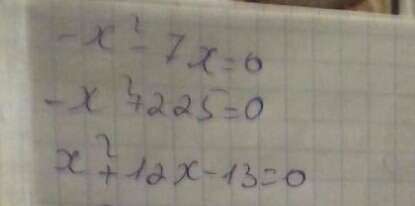 -x²-7x=0
-x²+225=0
x²+12x-13=0